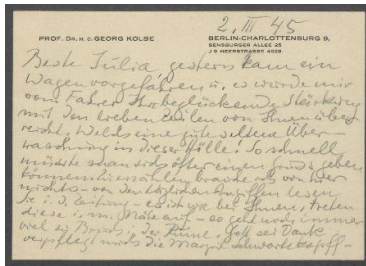 2. III 45
PROF. DR. H. C. GEORG KOLBE
BERLIN-CHARLOTTENBURG 9,
SENSBURGER ALLEE 25
J 9 HEERSTRASSE 4029
Beste Julia, gestern kam ein
Wagen vorgefahren u. es wurde mir
vom Fahrer Ihre beglückende Stärkung
mit den lieben Zeilen von Ihnen über
reicht. Welch eine gute seltene Über-
raschung in dieser Hölle! So schnell
müsste man sich öfter einen Grund geben
können. Zu erzählen brauche ich von hier
nichts – von den täglichen Angriffen lesen
Sie i. d. Zeitung – es ist wie bei Ihnen, treten
diese i. m. Nähe auf – es geht noch immer
viel zu Bruch i. der Ruine. Gott sei Dank
verpflegt mich die